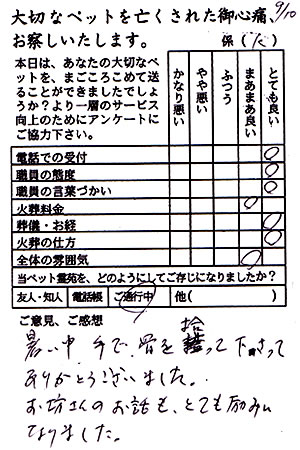 大切なペットを亡くされた御心痛、
お察しいたします。
9/10
係( )
本日は、あなたの大切なペットを、まごころこめて送ることができましたでしょうか?より一層のサービス向上のためにアンケートにご協力下さい。
かなり悪い
やや悪い
ふつう
まあまあ良い
とても良い
電話での受付 ○
職員の態度 ○
職員の言葉づかい ○
火葬料金 ○
葬儀・お経 ○
火葬の仕方 ○
全体の雰囲気 ○
当ペット霊苑を、どのようにしてご存じになりましたか?
友人・知人 電話帳 ご通行中 他( )
ご意見、ご感想
暑い中 手で、骨を拾って下さって
ありがとうございました。
お坊さんのお話も、とても励みに
なりました。